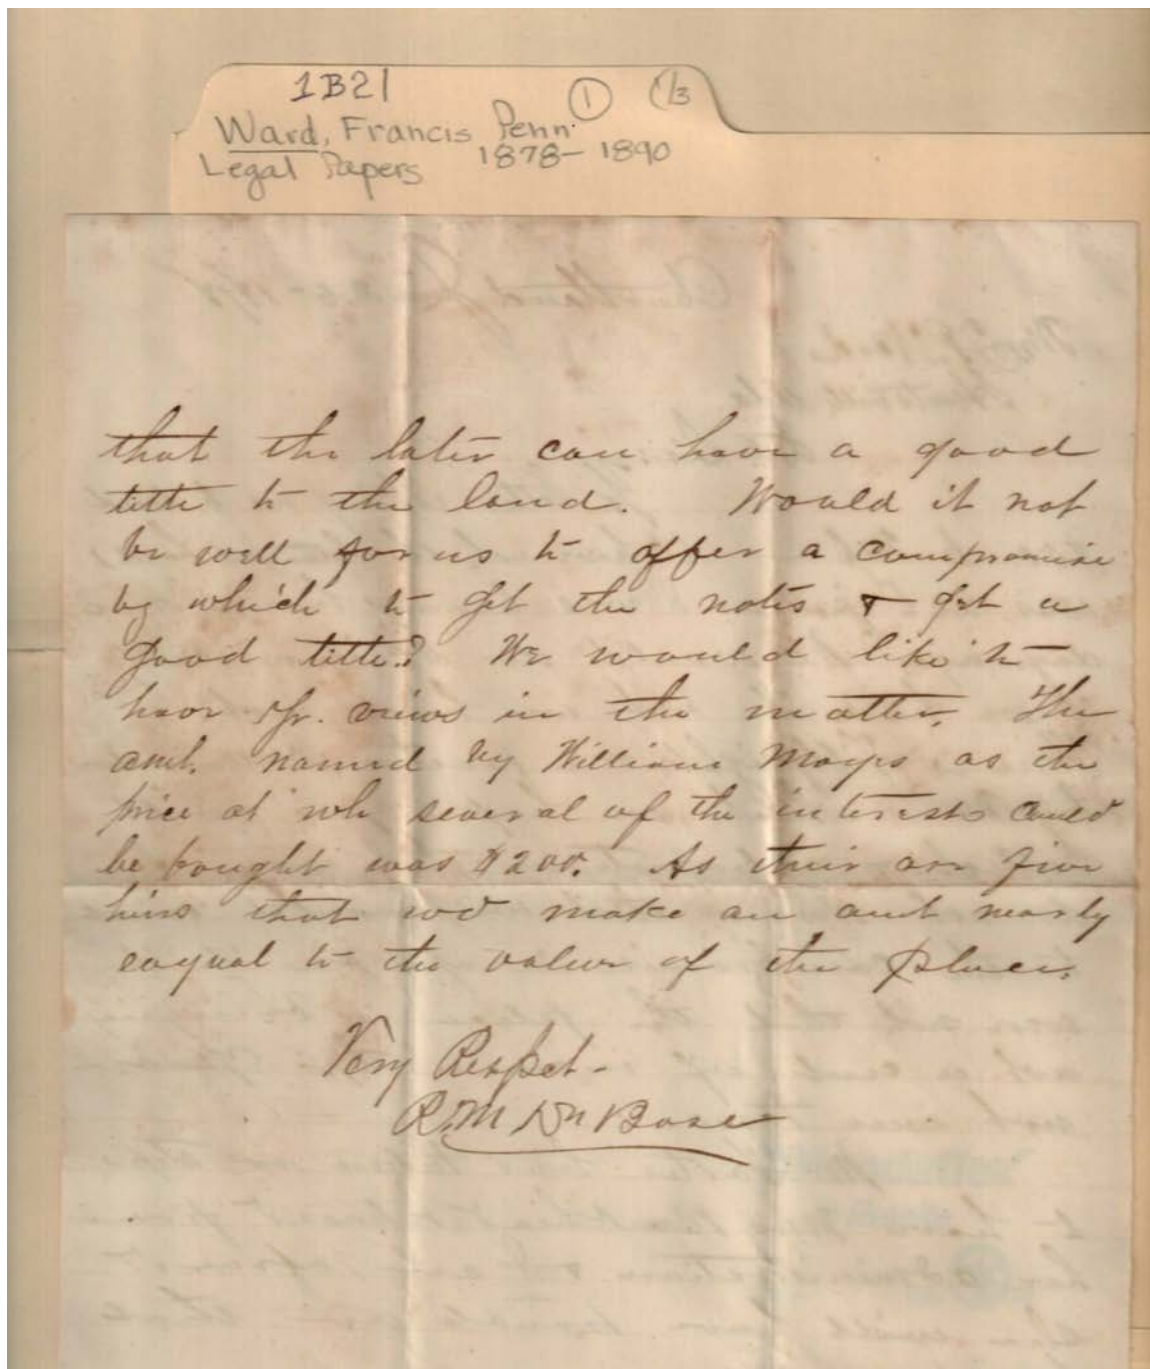 1B21 ① 1/3
Ward, Francis Penn.
Legal Papers 1878-1890
that the later can have a good
title to the land. Would it not
be well for us to offer a compromise
by which to get the notes & get a
good title? We would like to
hear yr. views in the matter. The
amt. named by William Mayes as the
price at wh several of the interests could
be bought was $200. As their are five
hirs that wd make an amt nearly
eaqual to the value of the place.
Very Respet-
R.M DuBose